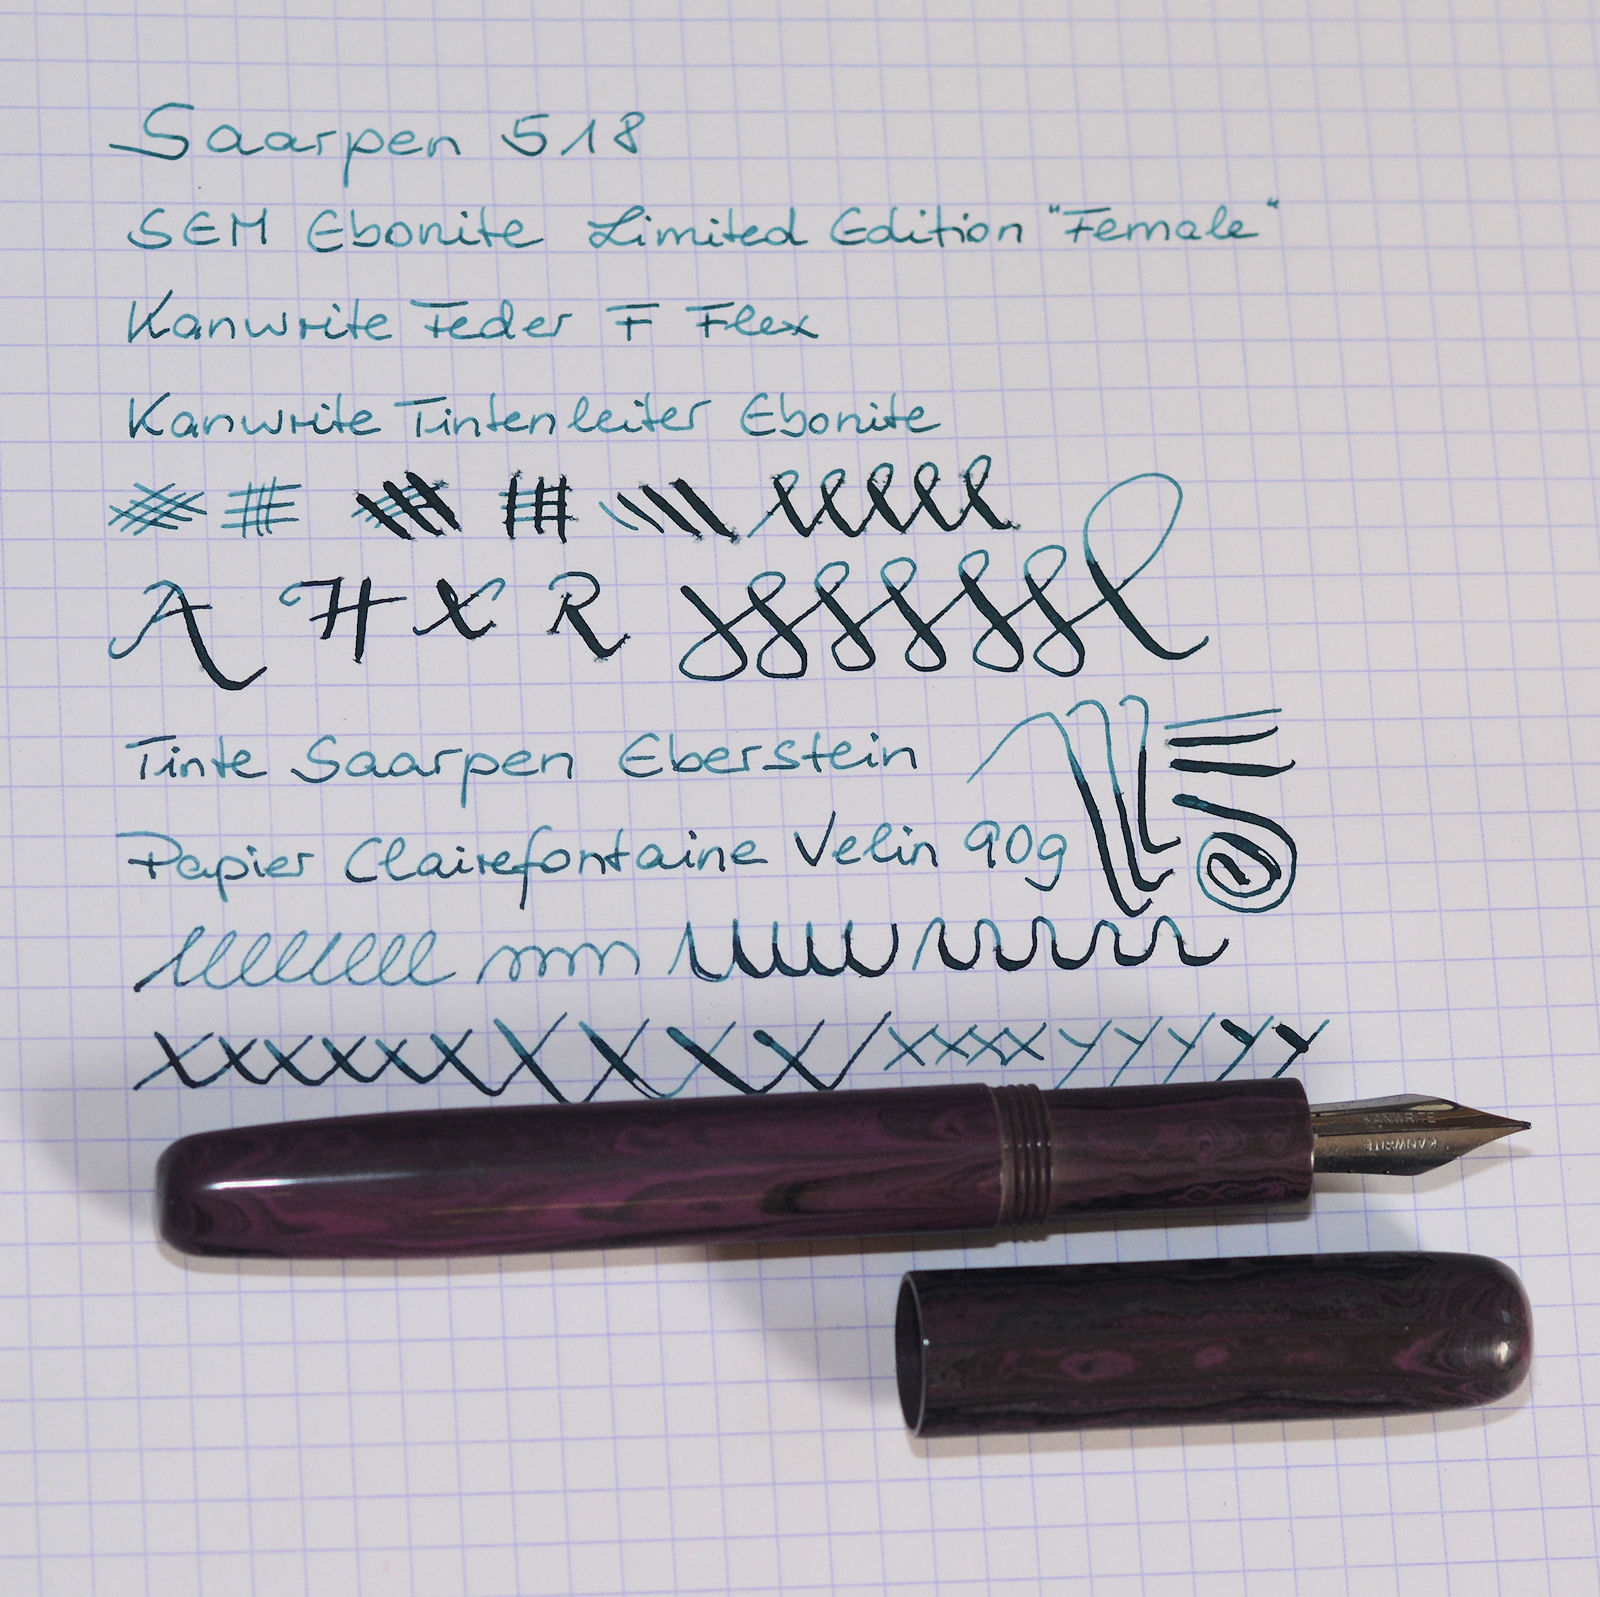 Saarpen 518
SEM Ebonite Limited Edition "Female"
Kanwrite Feder F Flex
Kanwrite Tintenleiter Ebonite
A H X R
Tinte Saarpen Eberstein
Papier Clairefontaine Velin 90g
xxxxxxxxxx xxxx yyyyy
KANWRITE
KANWRITE